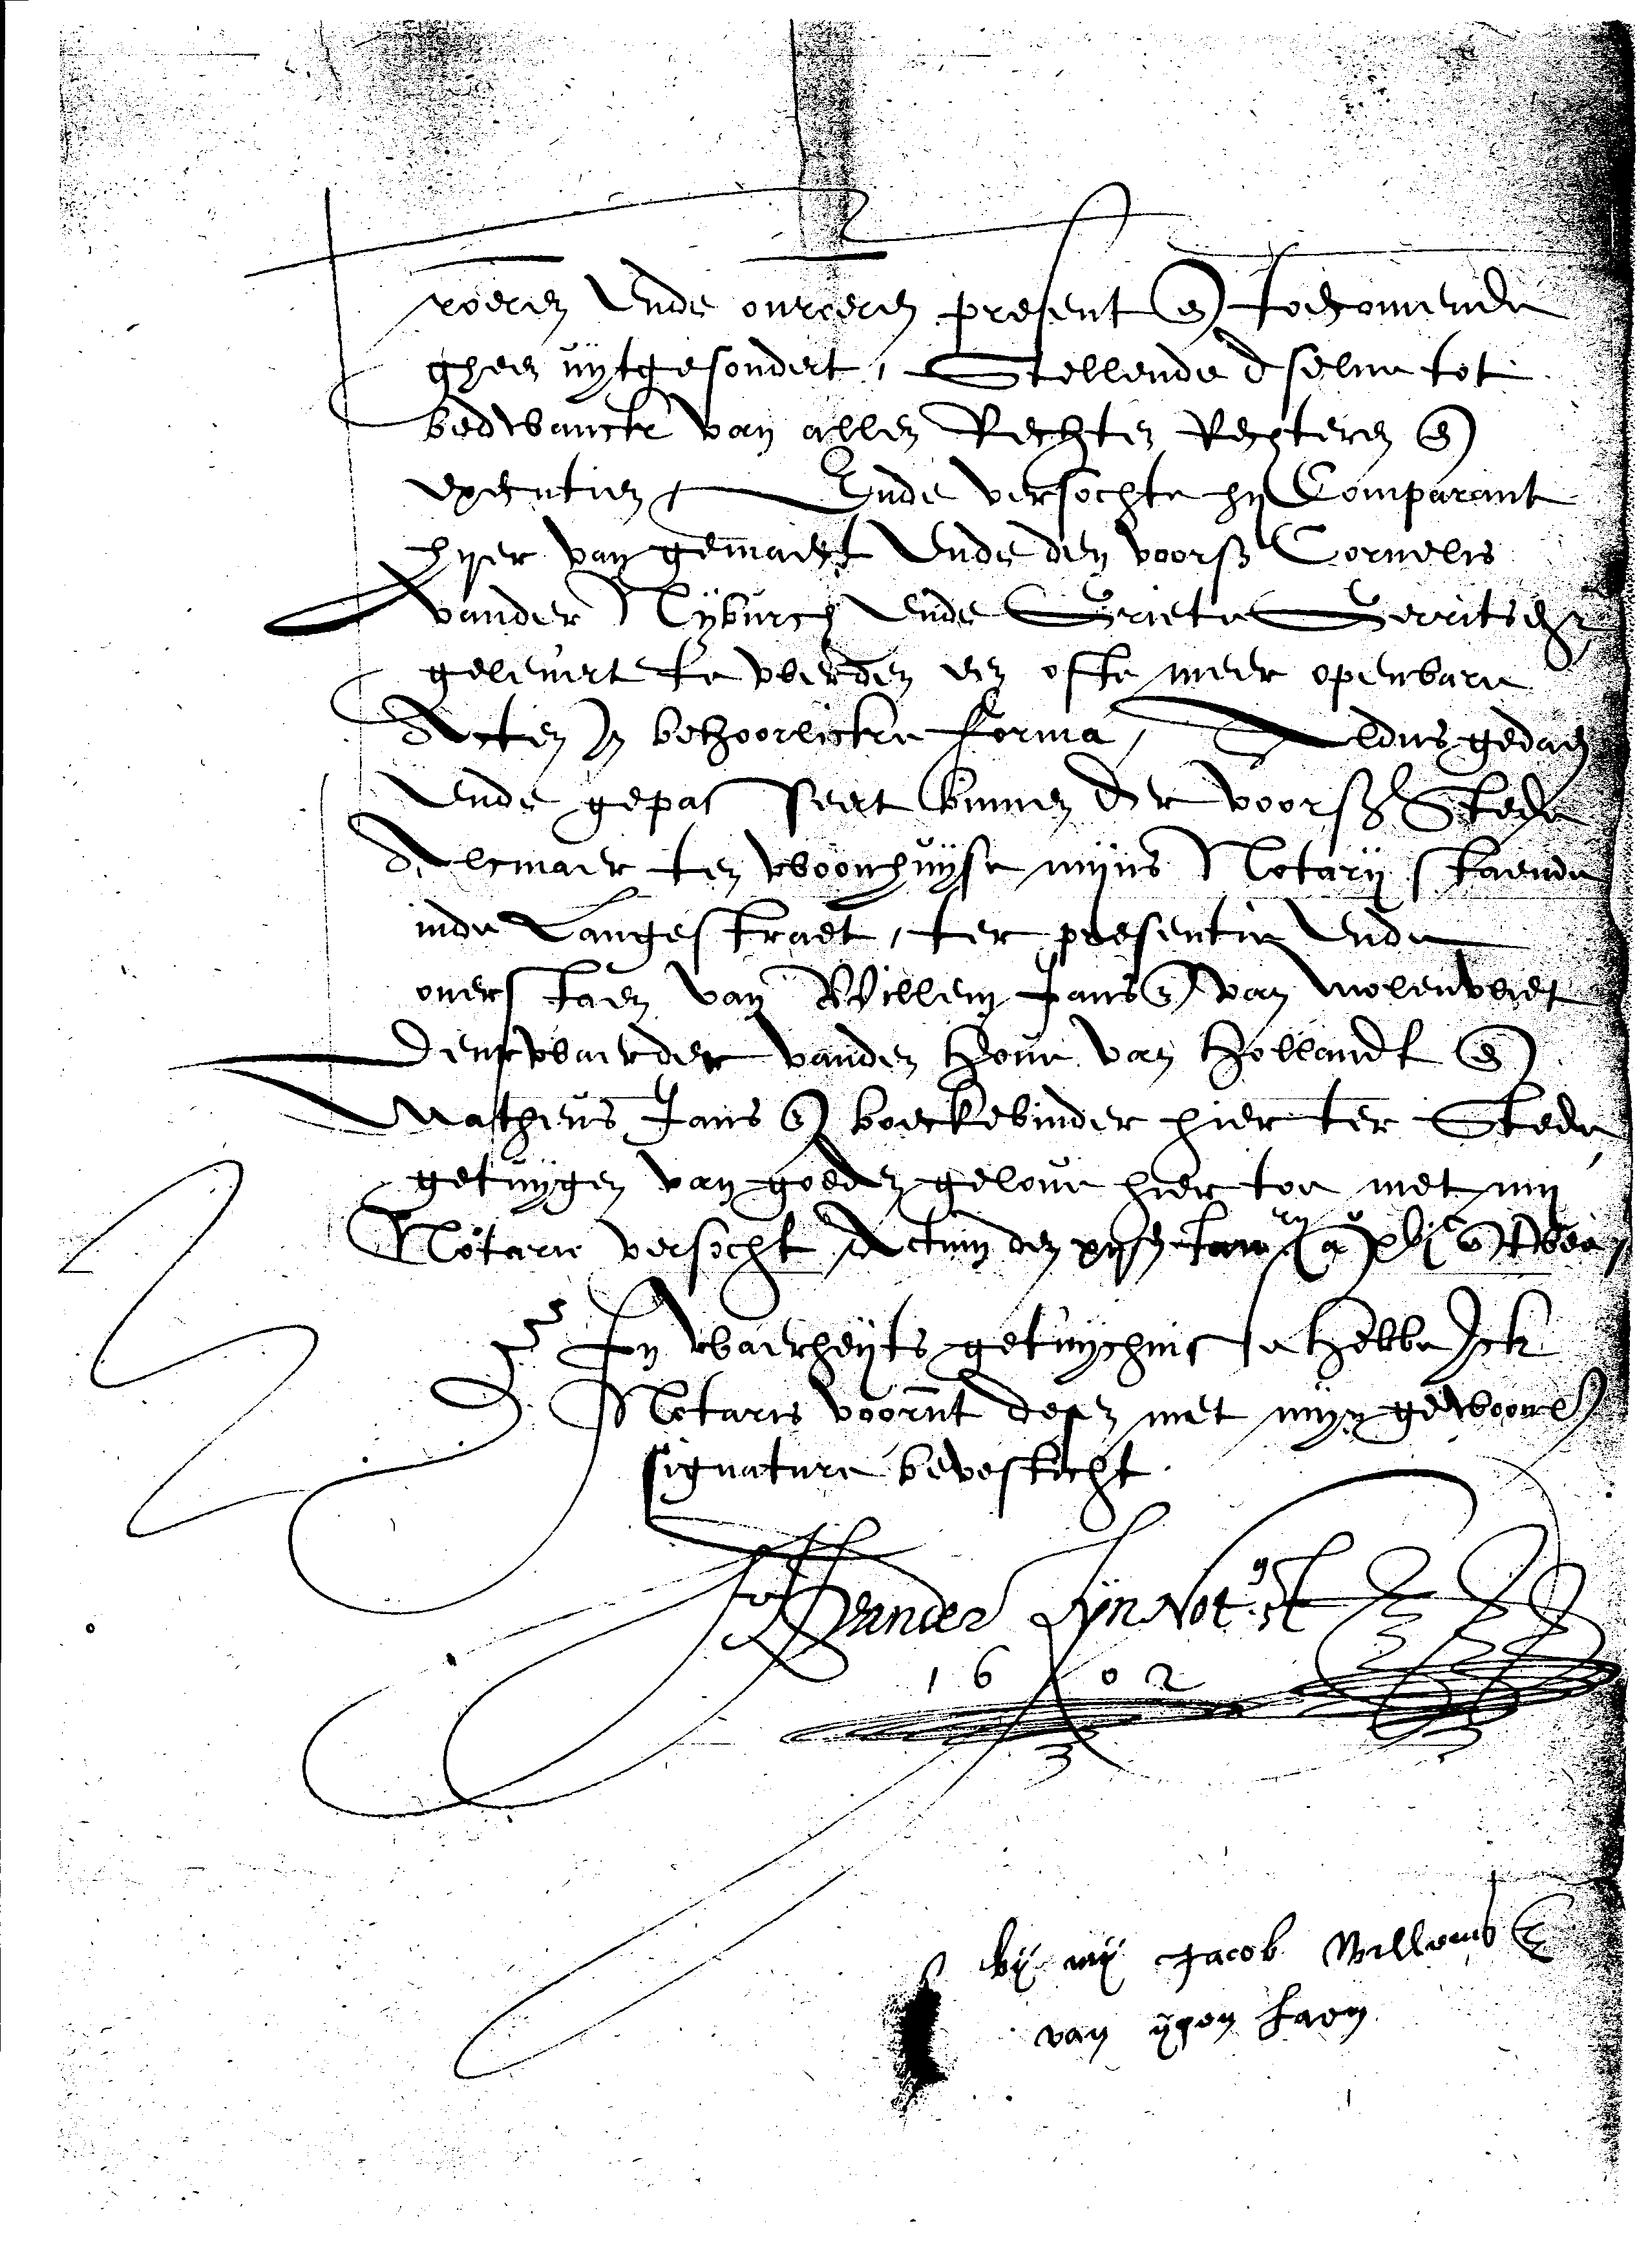 roeren ende onroeren present en(de) toecomende
gheen uijtgesondert, Stellende d'selve tot
bedwanck van allen Rechten Rechteren en(de)
executien Ende versochte hij Comparant
hyer van gemaect ende den voorsz Cornelis
vander Nijburch ende Griete Gerritsdr
gelevert te werden een ofte meer openbare
Acten in behoorlicke forma, Aldus gedaen
ende gepasseert binnen der voorsz Stede
Alcmaer ten woonhuijse mijns Notarij staende
inde Langestraet, ter presentie ende
overstaen van Willem Jansz van molenvliet
Deurwaerder vanden Hove van Hollandt en(de)
Matheus Jansz boeckebinder hier ter Stede
getuijgen van goeden gelove hier toe met mij
Notarie versocht Actum den Januarij a° xvjc en(de) twee
In waerheijts getuijchnisse hebbe Ick
Notaris voornt desen met mijn gewoonl
signature bevesticht
vander Lijn Not. st
1602
bij mij Jacob Willemsz
van ijpen laen